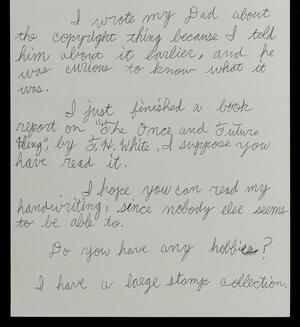 I wrote my Dad about
the copyright thing because I told
him about it earlier, and he
was curious to know what it
was.
I just finished a book
report on "The Once and Future
King", by T.H. White. I suppose you
have read it.
I hope you can read my
handwriting, since nobody else seems
to be able to.
Do you have any hobbies?
I have a large stamp collection.